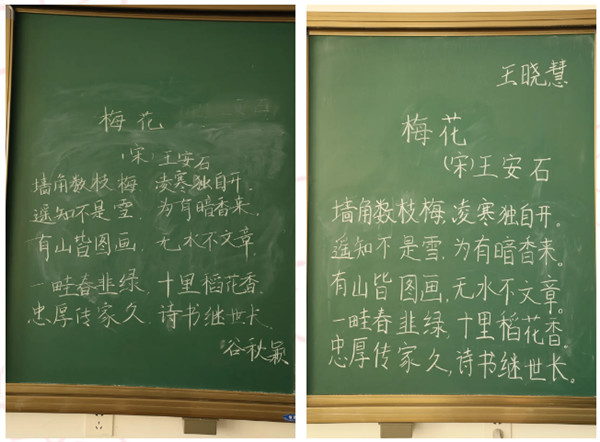 梅花
(宋)王安石
墙角数枝梅,凌寒独自开.
遥知不是雪,为有暗香来.
有山皆图画,无水不文章.
一畦春韭绿,十里稻花香.
忠厚传家久.诗书继世长.
谷秋颖
王晓慧
梅花
(宋)王安石
墙角数枝梅,凌寒独自开。
遥知不是雪,为有暗香来。
有山皆图画,无水不文章。
一畦春韭绿,十里稻花香。
忠厚传家久,诗书继世长。